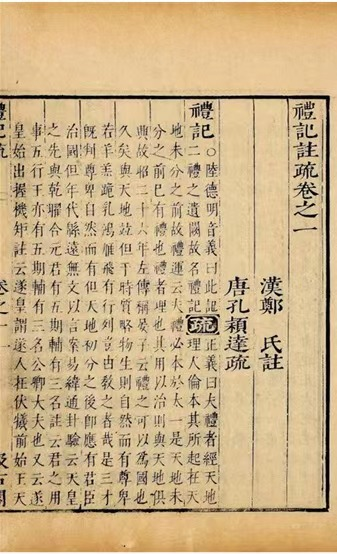 禮記註疏卷之一
漢鄭 氏註
唐孔穎達疏
禮記 ○陸德明音義曰此記
二禮之遺闕故名禮記
疏 正義曰夫禮者經天地
理人倫本其所起在天
地未分之前故禮運云夫禮必本於太一是天地未
分之前已有禮也禮者理也其用以治則與天地俱
興故昭二十六年左傳稱晏子云禮之可以為國也
久矣與天地並但于時質略物生則自然而有尊卑
若羊羔跪乳鴻雁飛有行列豈由教之者哉是三才
既判尊卑自然而有但天地初分之後即應有君臣
治國但年代縣遠無文以言案易緯通卦驗云天皇
之先與乾曜合元君有五期輔有三名註云君之用
事五行王亦有五期輔有三名公卿大夫也又云遂
皇始出握機矩註云遂皇謂遂人在伏犧前始王天
禮記疏 卷之一 一 汲古閣